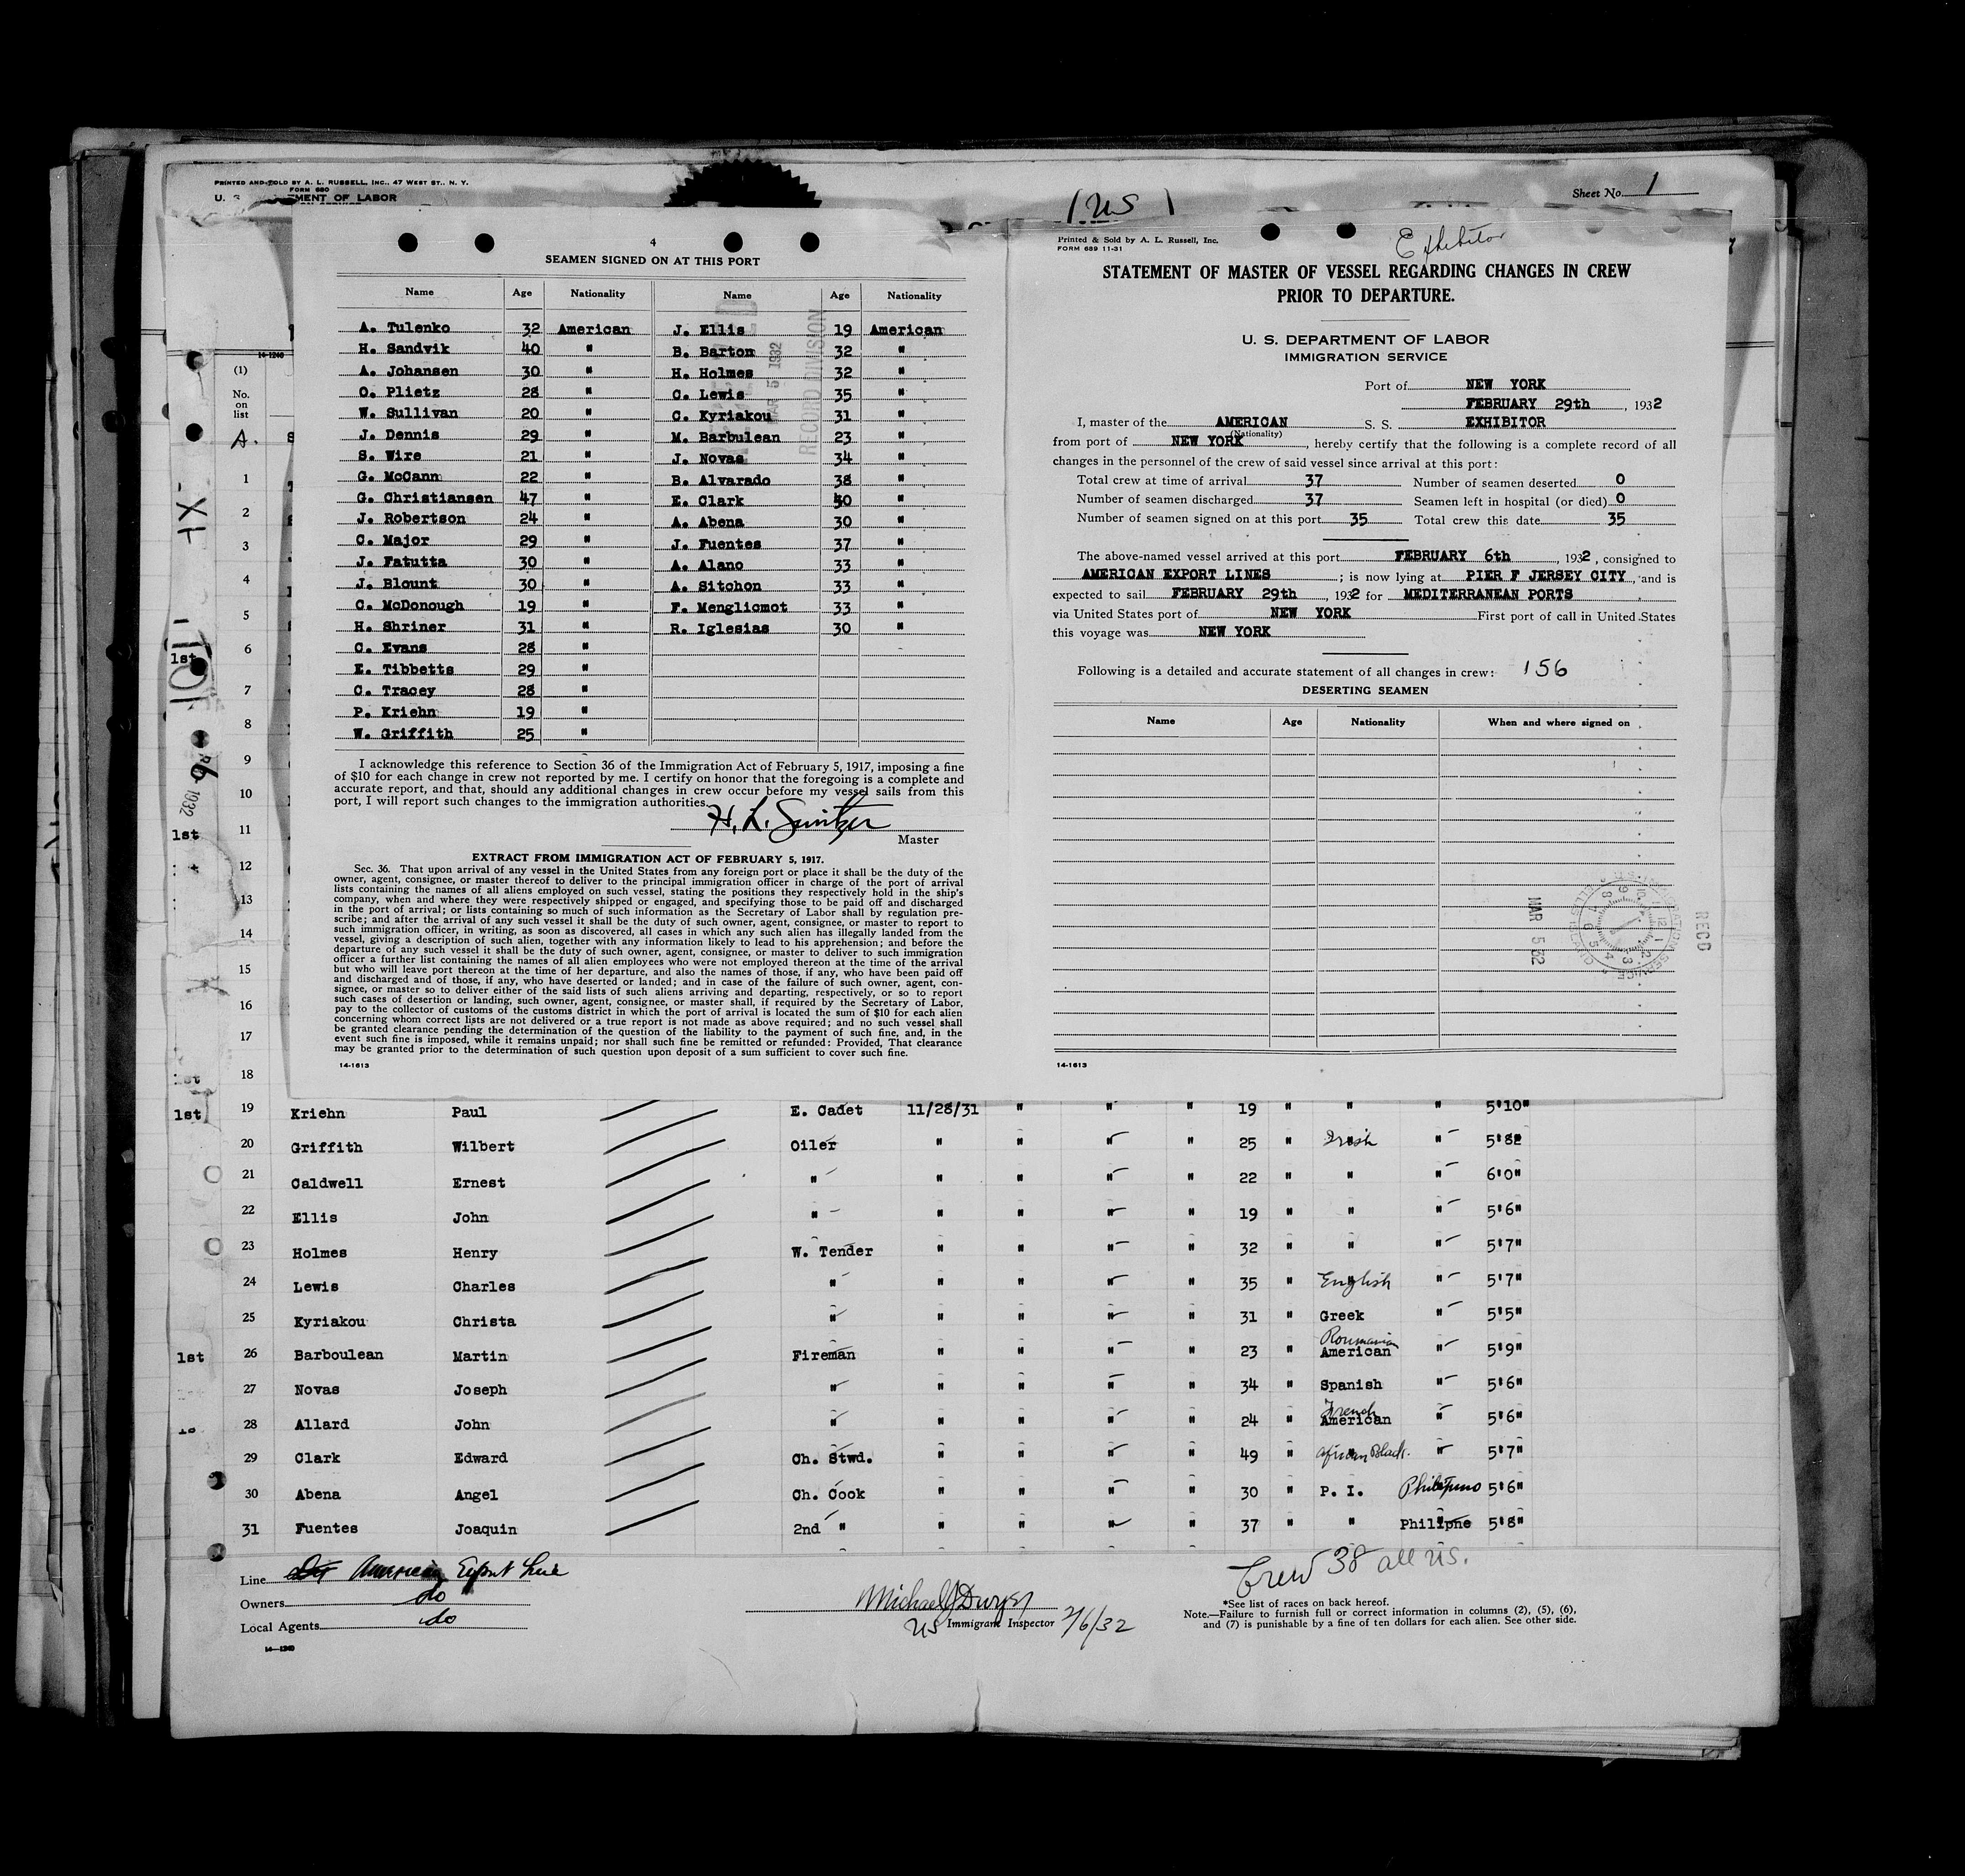 PRINTED AND SOLD BY A. L. RUSSELL, INC., 47 WEST ST., N. Y.
FORM 680
MENT OF LABOR
Sheet No. 1
(US)
4
SEAMEN SIGNED ON AT THIS PORT
Name Age Nationality Name Age Nationality
A. Tulenko 32 American J. Ellis 19 American
H. Sandvik 40 " B. Barton 32 "
A. Johansen 30 " H. Holmes 32 "
O. Plietz 28 " C. Lewis 35 "
W. Sullivan 20 " C. Kyriakou 31 "
J. Dennis 29 " M. Barbulean 23 "
S. Wire 21 " J. Novas 34 "
G. McCann 22 " B. Alvarado 38 "
G. Christiansen 47 " E. Clark 40 "
J. Robertson 24 " A. Abena 30 "
C. Major 29 " J. Fuentes 37 "
J. Fatutta 30 " A. Alano 33 "
J. Blount 30 " A. Sitchon 33 "
C. McDonough 19 " F. Menglicmot 33 "
H. Shriner 31 " R. Iglesias 30 "
C. Evans 28 "
E. Tibbetts 29 "
C. Tracey 28 "
P. Kriehn 19 "
W. Griffith 25 "
MAR 5 1932
RECORD DIVISION
I acknowledge this reference to Section 36 of the Immigration Act of February 5, 1917, imposing a fine
of $10 for each change in crew not reported by me. I certify on honor that the foregoing is a complete and
accurate report, and that, should any additional changes in crew occur before my vessel sails from this
port, I will report such changes to the immigration authorities.
Master
EXTRACT FROM IMMIGRATION ACT OF FEBRUARY 5, 1917.
Sec. 36. That upon arrival of any vessel in the United States from any foreign port or place it shall be the duty of the
owner, agent, consignee, or master thereof to deliver to the principal immigration officer in charge of the port of arrival
lists containing the names of all aliens employed on such vessel, stating the positions they respectively hold in the ship's
company, when and where they were respectively shipped or engaged, and specifying those to be paid off and discharged
in the port of arrival; or lists containing so much of such information as the Secretary of Labor shall by regulation pre-
scribe; and after the arrival of any such vessel it shall be the duty of such owner, agent, consignee, or master to report to
such immigration officer, in writing, as soon as discovered, all cases in which any such alien has illegally landed from the
vessel, giving a description of such alien, together with any information likely to lead to his apprehension; and before the
departure of any such vessel it shall be the duty of such owner, agent, consignee, or master to deliver to such immigration
officer a further list containing the names of all alien employees who were not employed thereon at the time of the arrival
but who will leave port thereon at the time of her departure, and also the names of those, if any, who have been paid off
and discharged and of those, if any, who have deserted or landed; and in case of the failure of such owner, agent, con-
signee, or master so to deliver either of the said lists of such aliens arriving and departing, respectively, or so to report
such cases of desertion or landing, such owner, agent, consignee, or master shall, if required by the Secretary of Labor,
pay to the collector of customs of the customs district in which the port of arrival is located the sum of $10 for each alien
concerning whom correct lists are not delivered or a true report is not made as above required; and no such vessel shall
be granted clearance pending the determination of the question of the liability to the payment of such fine, and, in the
event such fine is imposed, while it remains unpaid; nor shall such fine be remitted or refunded: Provided, That clearance
may be granted prior to the determination of such question upon deposit of a sum sufficient to cover such fine.
14-1613
Printed & Sold by A. L. Russell, Inc.
FORM 689 11-31
Exhibitor
STATEMENT OF MASTER OF VESSEL REGARDING CHANGES IN CREW
PRIOR TO DEPARTURE.
U. S. DEPARTMENT OF LABOR
IMMIGRATION SERVICE
Port of NEW YORK
FEBRUARY 29th, 1932
I, master of the AMERICAN S. S. EXHIBITOR
(Nationality)
from port of NEW YORK, hereby certify that the following is a complete record of all
changes in the personnel of the crew of said vessel since arrival at this port:
Total crew at time of arrival 37 Number of seamen deserted 0
Number of seamen discharged 37 Seamen left in hospital (or died) 0
Number of seamen signed on at this port 35 Total crew this date 35
The above-named vessel arrived at this port FEBRUARY 6th, 1932, consigned to
AMERICAN EXPORT LINES; is now lying at PIER F JERSEY CITY, and is
expected to sail FEBRUARY 29th, 1932 for MEDITERRANEAN PORTS
via United States port of NEW YORK First port of call in United States
this voyage was NEW YORK
Following is a detailed and accurate statement of all changes in crew: 156
DESERTING SEAMEN
Name Age Nationality When and where signed on
MAR 5 32
RECD
14-1613
14-1240
(1)
No.
on
list
A.
1
2
3
4
5
6
7
8
9
10
11
12
13
14
15
16
17
18
1st 19 Kriehn Paul E. Cadet 11/28/31 " " " 19 " " " 5'10"
20 Griffith Wilbert Oiler " " " " 25 " Irish " 5'8½
21 Caldwell Ernest " " " " " 22 " " " 6'0"
22 Ellis John " " " " " 19 " " " 5'6"
23 Holmes Henry W. Tender " " " " 32 " " " 5'7"
24 Lewis Charles " " " " " 35 " English " 5'7"
25 Kyriakou Christa " " " " " 31 " Greek " 5'5"
Roumanian
1st 26 Barboulean Martin Fireman " " " " 23 " American " 5'9"
27 Novas Joseph " " " " " 34 " Spanish " 5'6"
French
28 Allard John " " " " " 24 " American " 5'6"
29 Clark Edward Ch. Stwd. " " " " 49 " African Black. " 5'7"
30 Abena Angel Ch. Cook " " " " 30 " P. I. Philipino 5'6"
31 Fuentes Joaquin 2nd " " " " " 37 " " Philipne 5'8"
Line American Export Line
Owners do
Local Agents do
14-1240
Michael J Dwyer
US Immigrant Inspector 2/6/32
Crew 38 all US.
*See list of races on back hereof.
Note.—Failure to furnish full or correct information in columns (2), (5), (6),
and (7) is punishable by a fine of ten dollars for each alien. See other side.